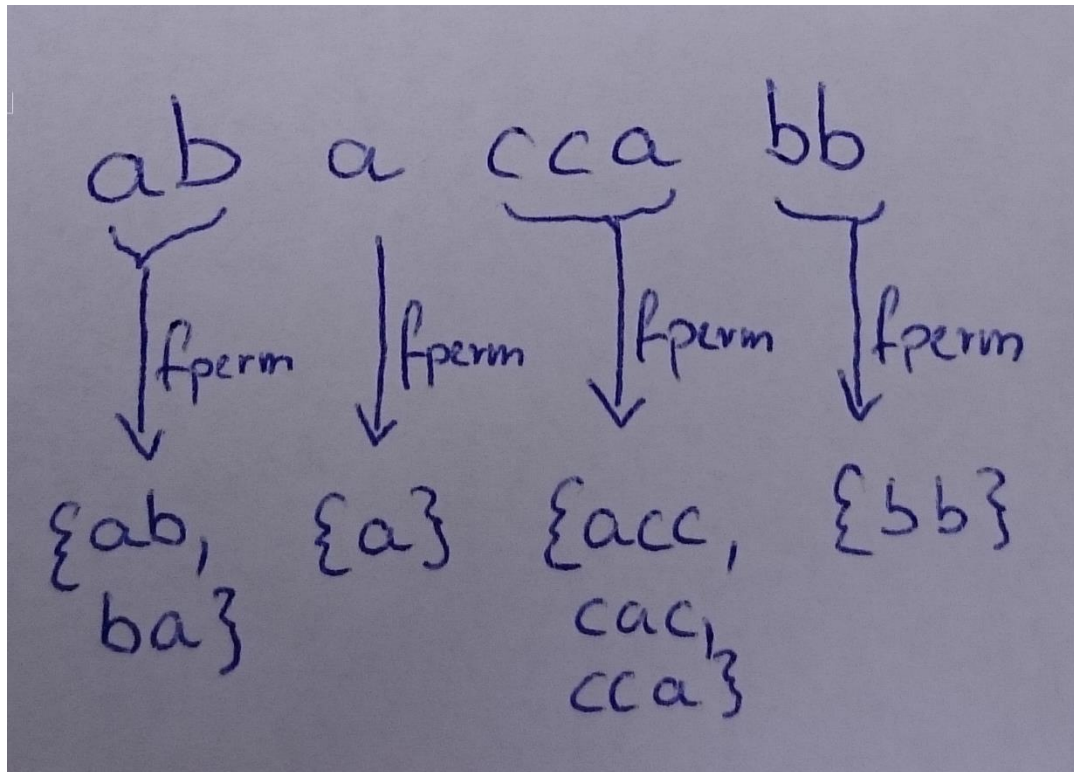 ab a cca bb
fperm fperm fperm fperm
{ab, {a} {acc, {bb}
ba} cac,
cca}